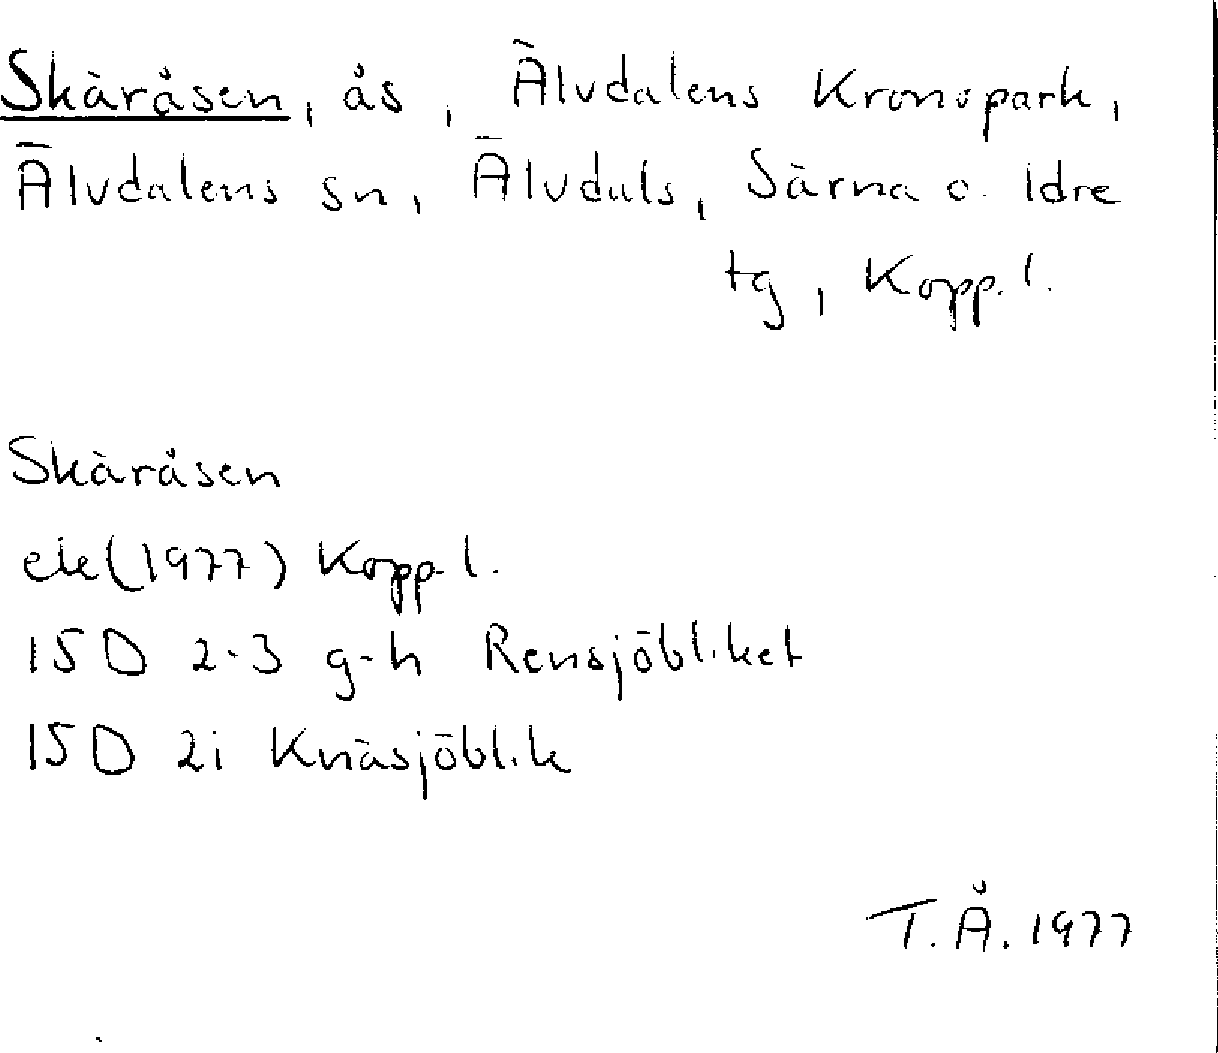 Skäråsen, ås, Älvdalens Kronopark,
Älvdalens sn, Älvdals, Särna o. Idre
tg, Kopp. l.
Skäråsen
ek (1977) Kopp. l.
15D 2-3 g-h Rensjöbliket
15D 2i Knäsjöblik
T.Å. 1977